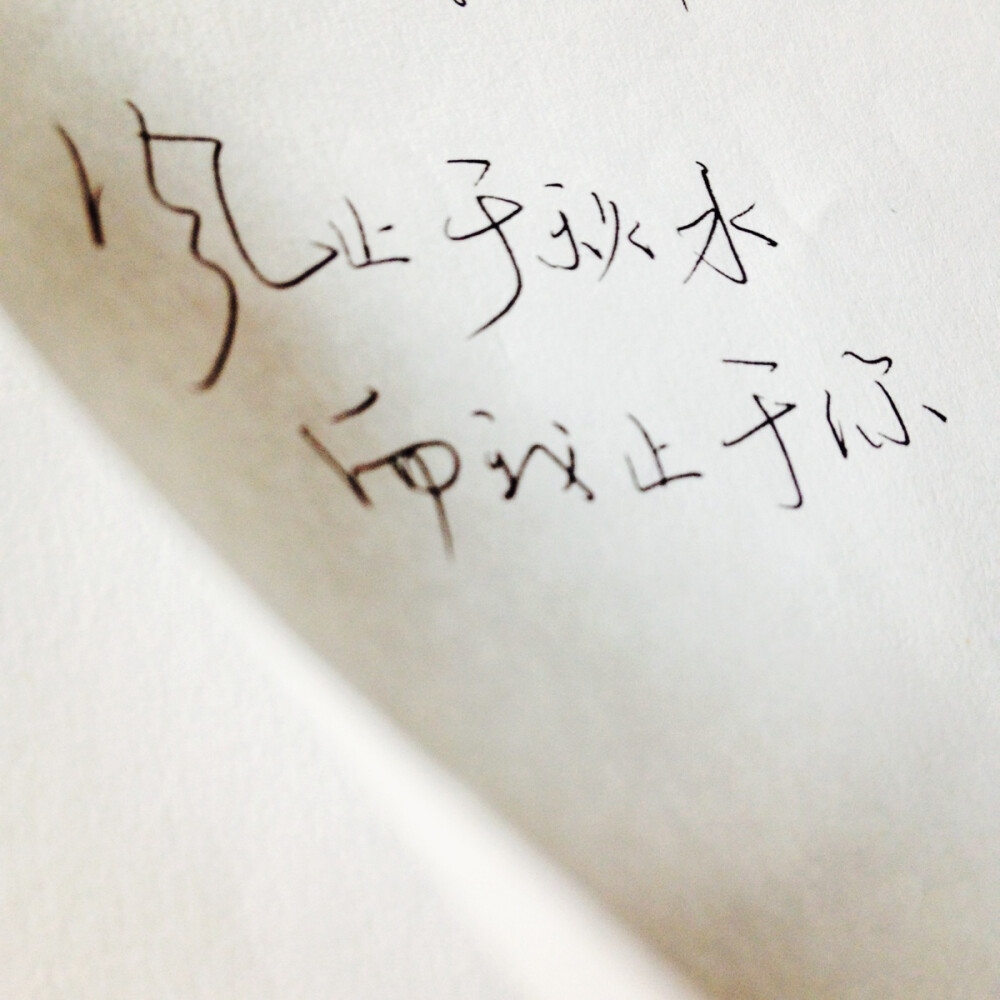 风止于秋水
而我止于你